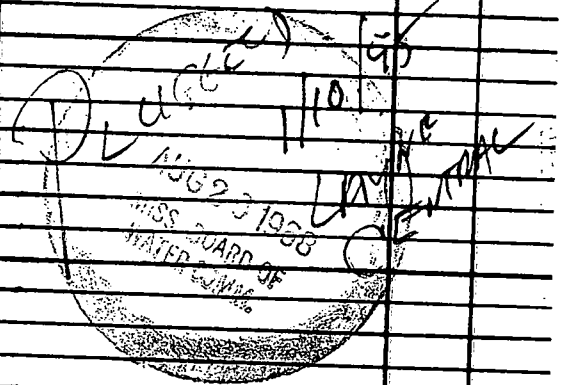 Plugged
11/10/95
LAYNE
CENTRAL
AUG 23 1968
MISS. BOARD OF
WATER COMM.